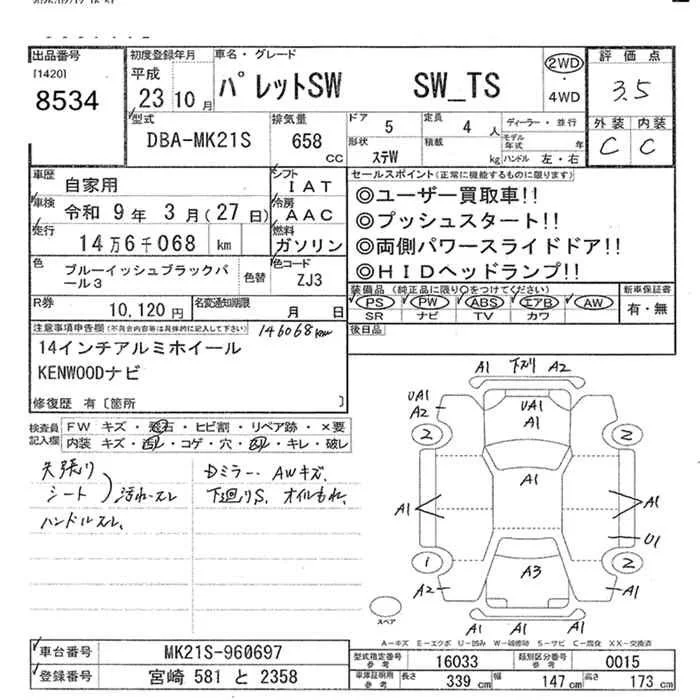 出品番号 [1420] 8534
初度登録年月 平成 23 10月
車名・グレード パレットSW SW_TS
2WD・4WD
評価点 3.5
外装 内装 C C
型式 DBA-MK21S
排気量 658 CC
ドア 5
定員 4 人
形状 ステW
積載 kg
ディーラー・並行
モデル年式 年
ハンドル 左・右
車歴 自家用
シフト IAT
車検 令和 9年 3月(27日)
冷房 AAC
走行 14万6千068 km
燃料 ガソリン
色 ブルーイッシュブラックパール3
色替
色コード ZJ3
R券 10,120円
名変通知期限 月 日
セールスポイント(正常に機能するものに限ります)
◎ユーザー買取車!!
◎プッシュスタート!!
◎両側パワースライドドア!!
◎HIDヘッドランプ!!
装備品(純正品に限り○をつけてください)
PS PW ABS エアB AW
SR ナビ TV カワ
新車保証書 有・無
後日品
注意事項申告欄(不具合内容等は具体的に記入して下さい) 146068km
14インチアルミホイール
KENWOODナビ
修復歴 有〔箇所 〕
検査員記入欄
FW キズ・飛石・ヒビ割・リペア跡・×要
内装 キズ・汚れ・コゲ・穴・スレ・キレ・破レ
天張り
シート 汚れ・スレ
ハンドルスレ、
Dミラー、AWキズ、
下廻りS、オイルもれ、
A1 下ズリ A2
UA1 A2 UA1 A1
2 2
A1
A1 A1
U1
1 2
A3
A2 A1
A1 A1 A1
スペア
A-キズ E-エクボ U-凹み W-補修跡 S-サビ C-腐化 XX-交換済
車台番号 MK21S-960697
登録番号 宮崎 581 と 2358
型式指定番号 参考 16033
類別区分番号 参考 0015
車庫証明用 参考 長さ 339 cm 幅 147 cm 高さ 173 cm